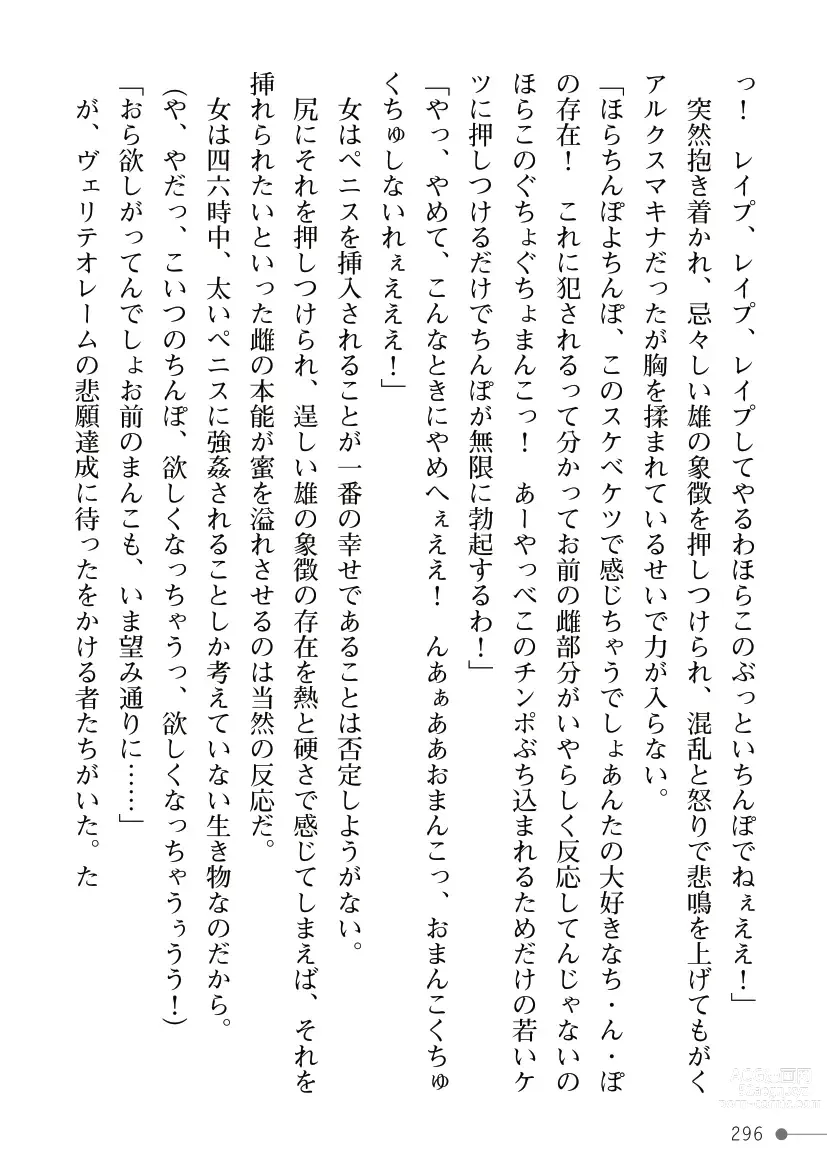 っ！　レイプ、レイプ、レイプしてやるわほらこのぶっといちんぽでねぇええ！」
突然抱き着かれ、忌々しい雄の象徴を押しつけられ、混乱と怒りで悲鳴を上げてもがく
アルクスマキナだったが胸を揉まれているせいで力が入らない。
「ほらちんぽよちんぽ、このスケベケツで感じちゃうでしょあんたの大好きなち・ん・ぽ
の存在！　これに犯されるって分かってお前の雌部分がいやらしく反応してんじゃないの
ほらこのぐちょぐちょまんこっ！　あーやっべこのチンポぶち込まれるためだけの若いケ
ツに押しつけるだけでちんぽが無限に勃起するわ！」
「やっ、やめて、こんなときにやめへぇええ！　んあぁああおまんこっ、おまんこくちゅ
くちゅしないれぇえええ！」
女はペニスを挿入されることが一番の幸せであることは否定しようがない。
尻にそれを押しつけられ、逞しい雄の象徴の存在を熱と硬さで感じてしまえば、それを
挿れられたいといった雌の本能が蜜を溢れさせるのは当然の反応だ。
女は四六時中、太いペニスに強姦されることしか考えていない生き物なのだから。
（や、やだっ、こいつのちんぽ、欲しくなっちゃうっ、欲しくなっちゃうぅうう！）
「おら欲しがってんでしょお前のまんこも、いま望み通りに……」
が、ヴェリテオレームの悲願達成に待ったをかける者たちがいた。た
296